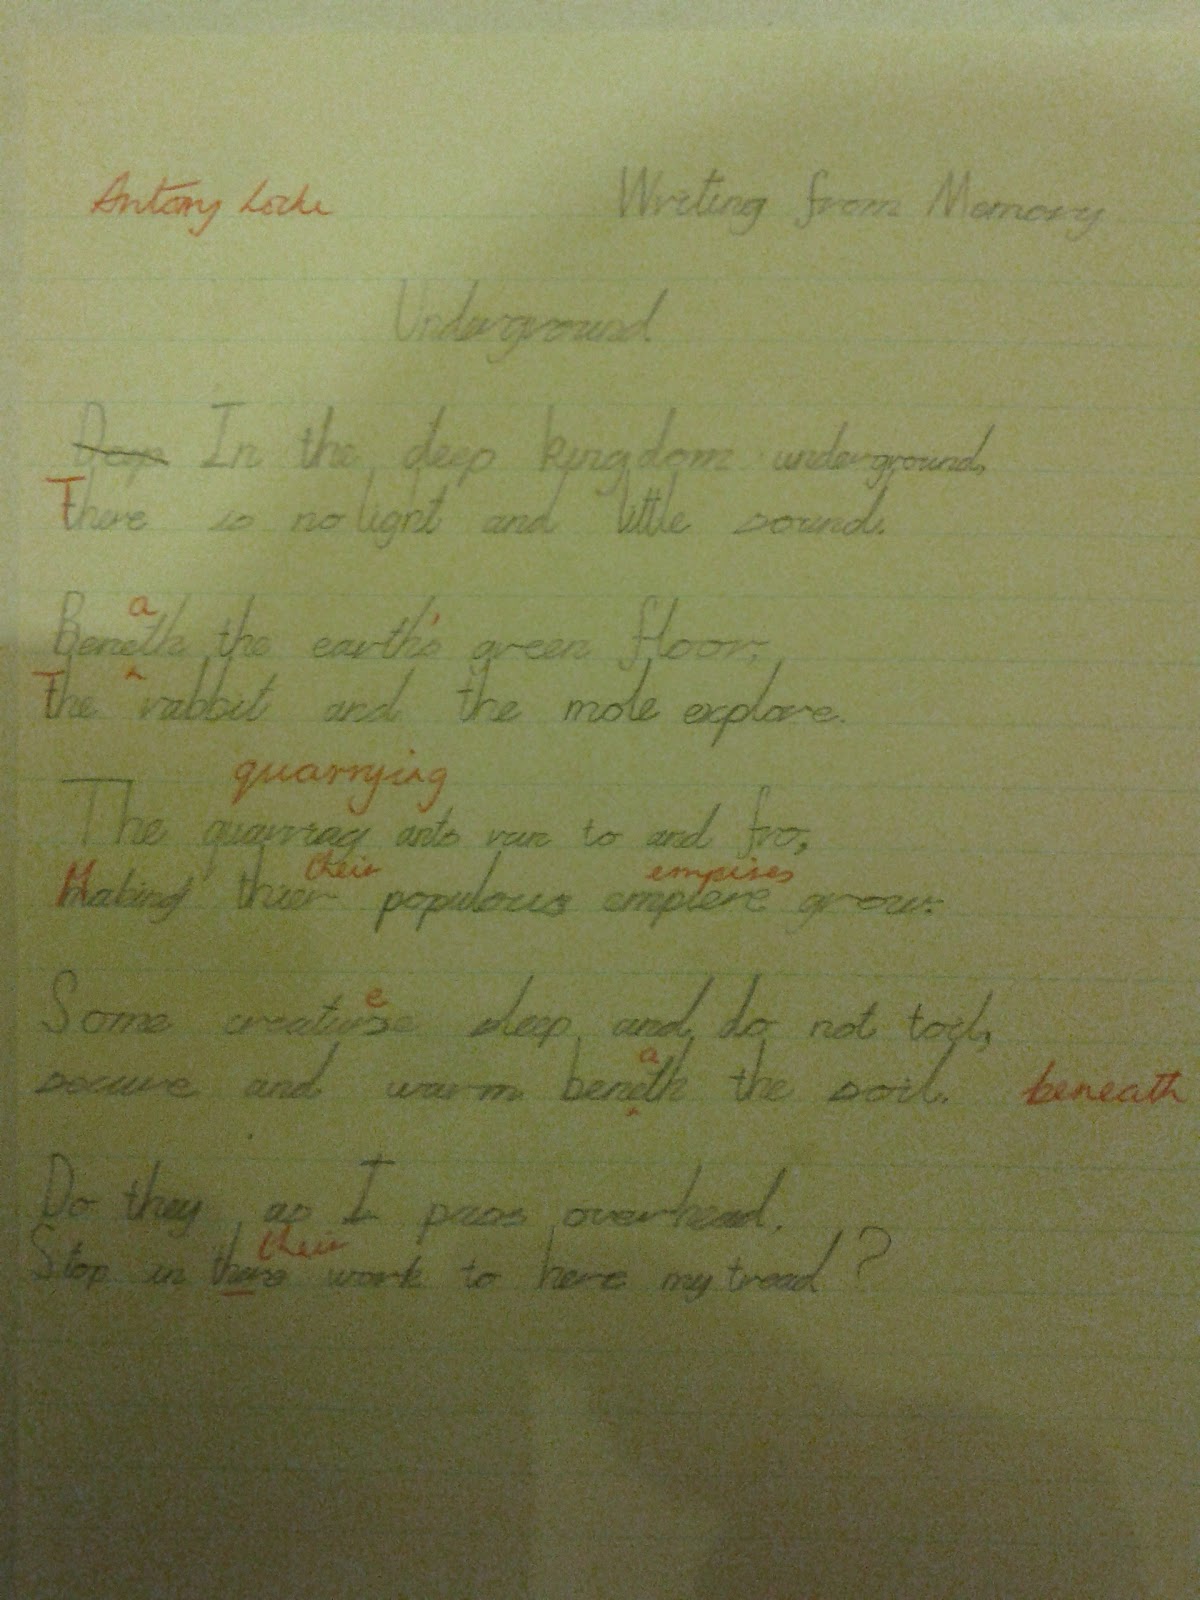 Antony Locke Writing from Memory
Underground
Deep In the deep kingdom underground,
There is no light and little sound.
a
Beneth the earth's green floor,
The rabbit and the mole explore.
quarrying
The quarrag ants run to and fro,
their empires
Making thier populous emplere grow.
e
Some creaturse sleep and do not toil,
a
secure and warm beneth the soil. beneath
Do they as I pass overhead.
their
Stop in there work to here my tread?